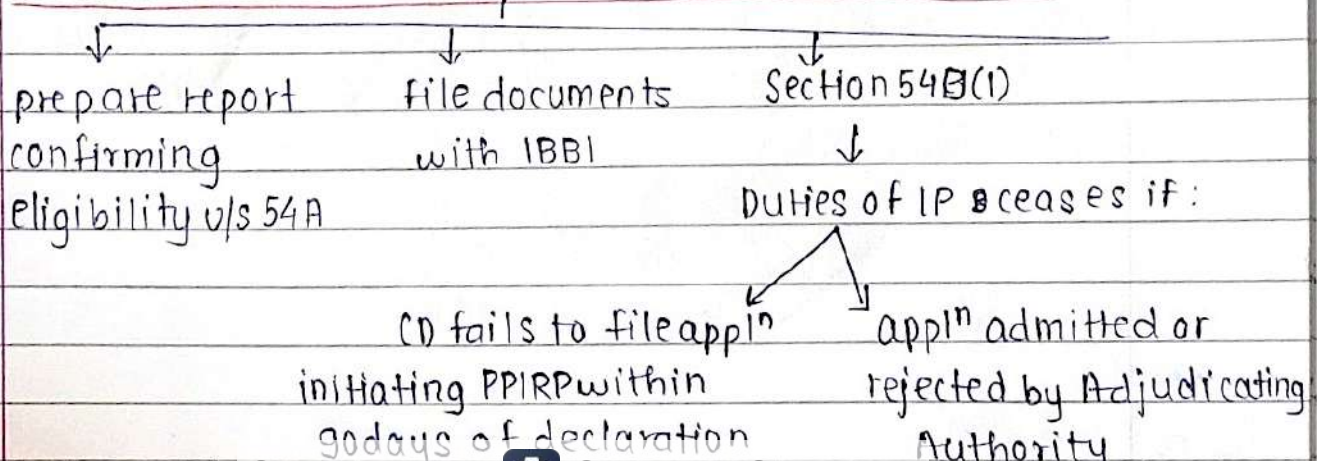 prepare report
confirming
eligibility u/s 54A
file documents
with IBBI
Section 54B(1)
Duties of IP ceases if :
CD fails to file applⁿ
initiating PPIRP within
90days of declaration
applⁿ admitted or
rejected by Adjudicating
Authority